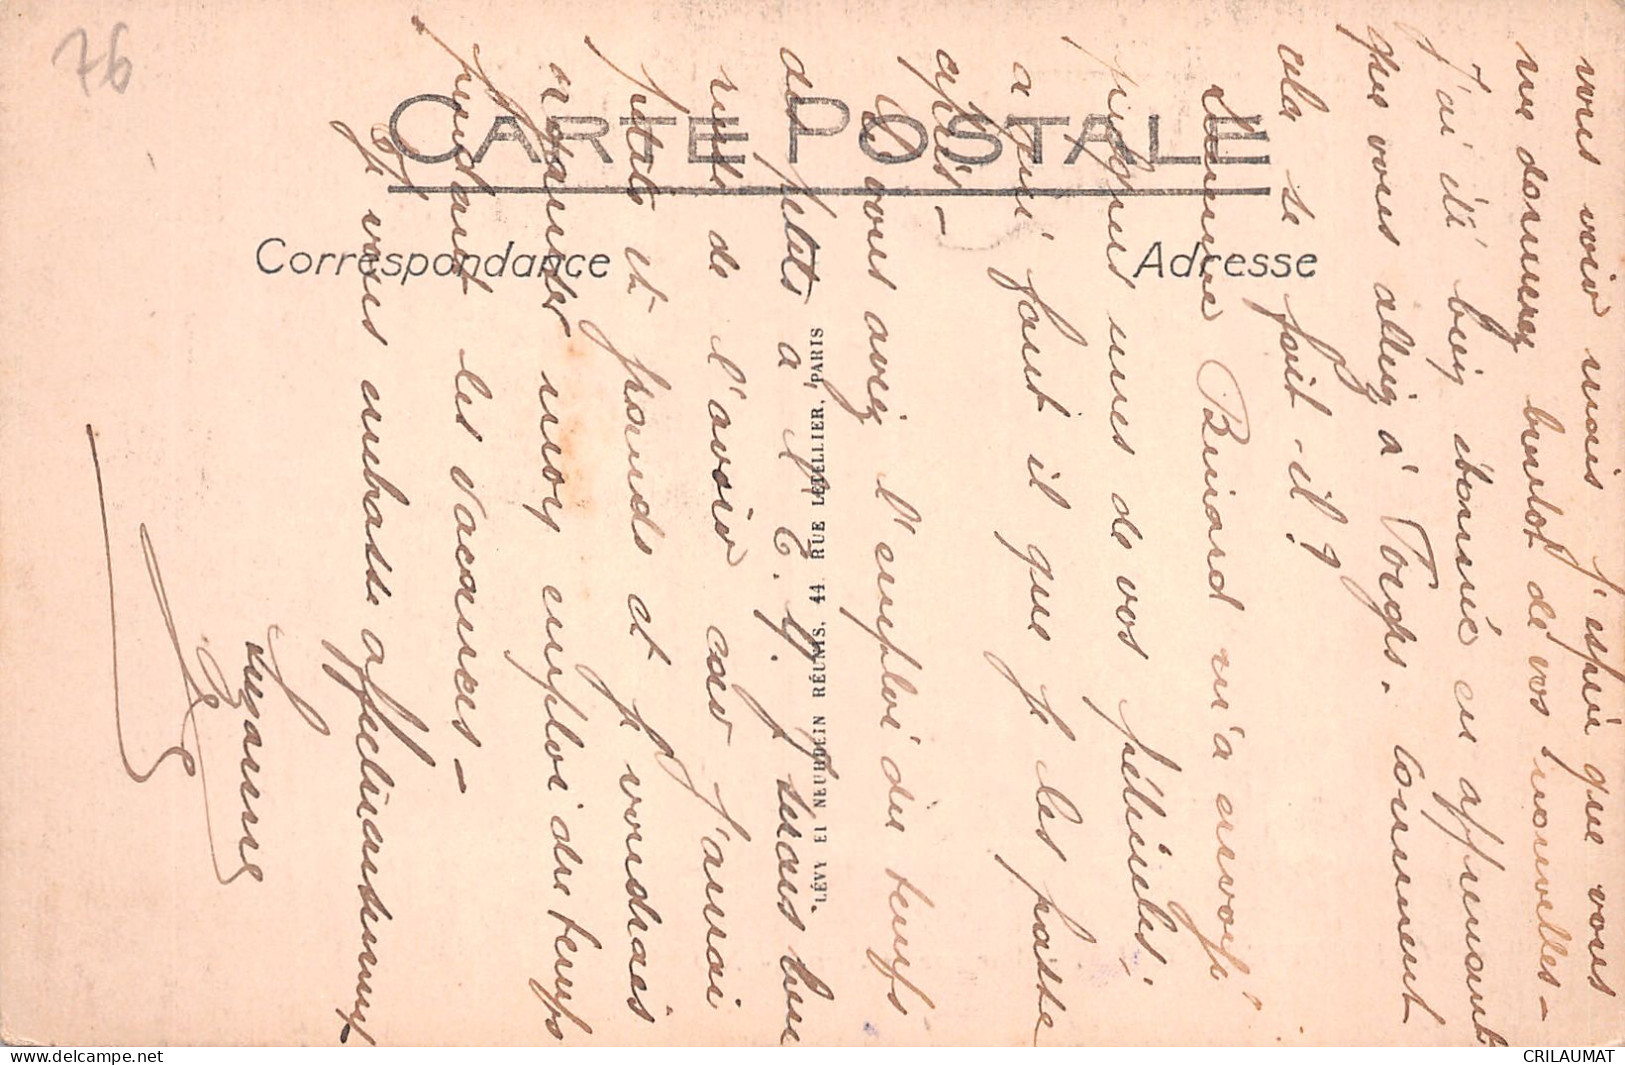 76
CARTE POSTALE
Correspondance
Adresse
LÉVY ET NEURDEIN RÉUNIS, 44, RUE LETELLIER, PARIS
vous voir mais j'espère que vous
me donnerez bientot de vos nouvelles -
J'ai été bien étonnée en apprenant
que vous alliez à Torgs. Comment
cela se fait-il ?
Simone Binard m'a envoyé
quelques unes de vos péllicules,
a qui faut il que je les passe
après -
Si vous avez l'emploi du temps
des petits à l' E. N. je serais bien
ravie de l'avoir car j'aurai
petits et grands et je voudrais
regarder mon emploi du temps
pendant les vacances -
Je vous embrasse affectueusement
Suzanne
CRILAUMAT